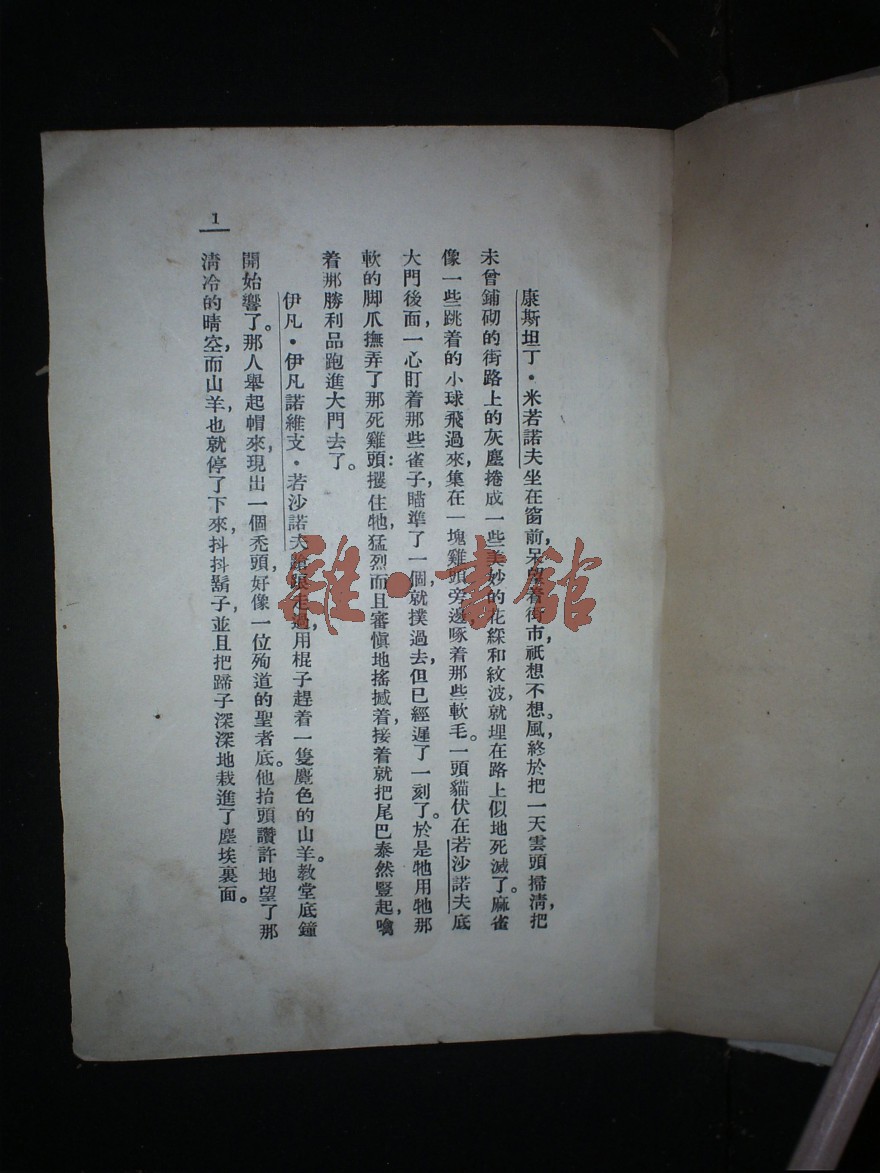 康斯坦丁・米若諾夫坐在窗前，呆望着街市祇想不想。風，終於把一天雲頭掃淸，把
未曾鋪砌的街路上的灰塵捲成一些美妙的花綵和紋波，就埋在路上似地死滅了。麻雀
像一些跳着的小球飛過來，集在一塊雞頭旁邊，啄着那些軟毛。一頭貓伏在若沙諾夫底
大門後面，一心盯着那些雀子，瞄準了一個，就撲過去，但已經遲了一刻了。於是牠用牠那
軟的脚爪撫弄了那死雞頭：攫住牠，猛烈而且審愼地搖撼着，接着就把尾巴泰然豎起，噙
着那勝利品跑進大門去了。
伊凡・伊凡諾維支・若沙諾夫走過，用棍子趕着一隻麑色的山羊。教堂底鐘
開始響了。那人舉起帽來，現出一個禿頭，好像一位殉道的聖者底。他抬頭讚許地望了那
淸冷的晴空，而山羊，也就停了下來，抖抖鬍子，並且把蹄子深深地栽進了塵埃裏面。
1
雜・書館